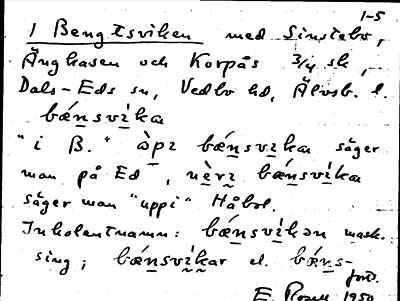 1-5
1 Bengtsviken med Sinstebo,
Änghasen och Korpås 3/4 sk,
Dals-Eds sn, Vedbo hd, Älvsb. l.
bǽn̲svi̲ka
"i B." òp̲ı bǽn̲svi̲ka säger
man på Ed, nèrı bǽn̲svi̲ka
säger man "uppi" Håbol.
Inbolentnamn: bǽn̲svi̲kən mask.
sing; bǽn̲svi̲kar el. bǽn̲s-
ford.
E. Rosell 1950